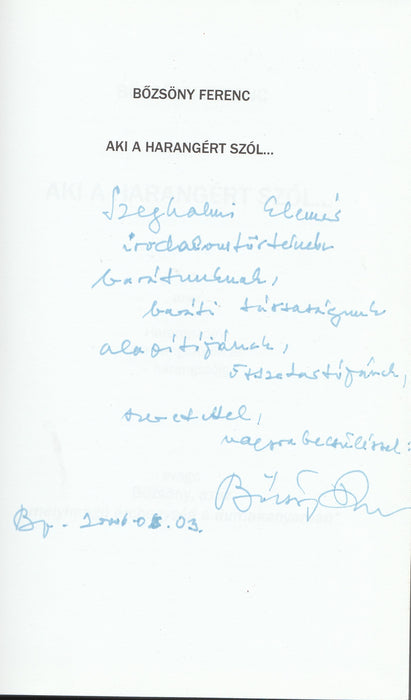 BŐZSÖNY FERENC
AKI A HARANGÉRT SZÓL...
Szeghalmi Elemér
irodalomtörténész
barátunknak,
baráti társaságunk
alapítójának,
összetartójának,
szeretettel,
nagyrabecsüléssel:
Bőzsöny Ferenc
Bp. 2006.03.